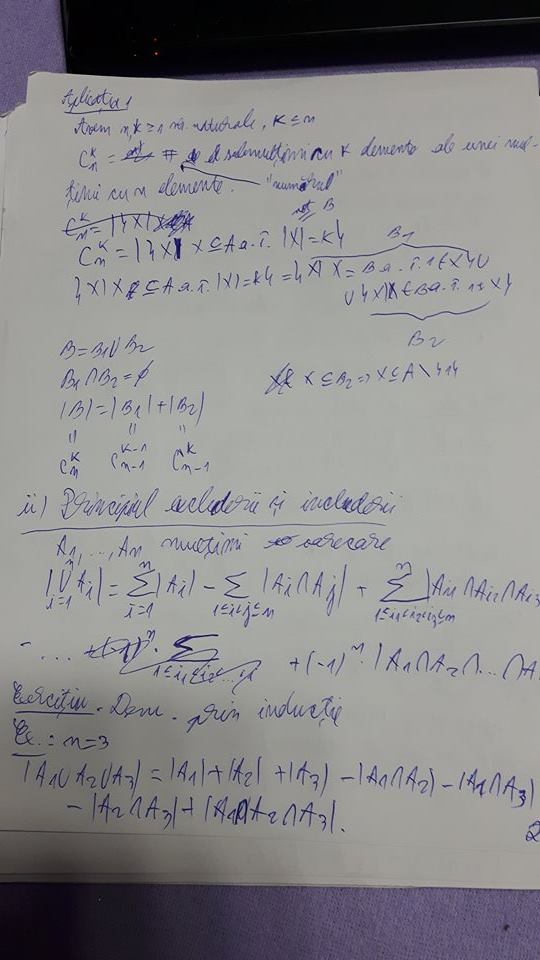 Aplicația 1
Avem n, k ≥ 1 nr. naturale, k ≤ n
C_n^k = # submulțimi cu k elemente ale unei mul-
țimi cu n elemente. "numărul"
not B
C_n^k = |{X | X ⊆ A a.î. |X| = k}|
B1
{X | X ⊆ A a.î. |X| = k} = {X | X = B a.î. 1 ∈ X} ∪
∪ {X | X ∈ B a.î. 1 ∉ X}
B2
B = B1 ∪ B2
B1 ∩ B2 = ∅
X ⊆ B2 => X ⊆ A \ {1}
|B| = |B1| + |B2|
= = =
C_n^k C_{n-1}^{k-1} C_{n-1}^k
ii) Principiul excluderii și includerii
A1, ..., An mulțimi oarecare
|⋃_{i=1}^n Ai| = Σ_{i=1}^n |Ai| - Σ_{1≤i<j≤n} |Ai ∩ Aj| + Σ_{1≤i1<i2<i3≤n}^n |Ai1 ∩ Ai2 ∩ Ai3
- ... + (-1)^n · |A1 ∩ A2 ∩ ... ∩ A
Exercițiu. Dem. prin inducție
Ex.: n = 3
|A1 ∪ A2 ∪ A3| = |A1| + |A2| + |A3| - |A1 ∩ A2| - |A1 ∩ A3|
- |A2 ∩ A3| + |A1 ∩ A2 ∩ A3|.
2